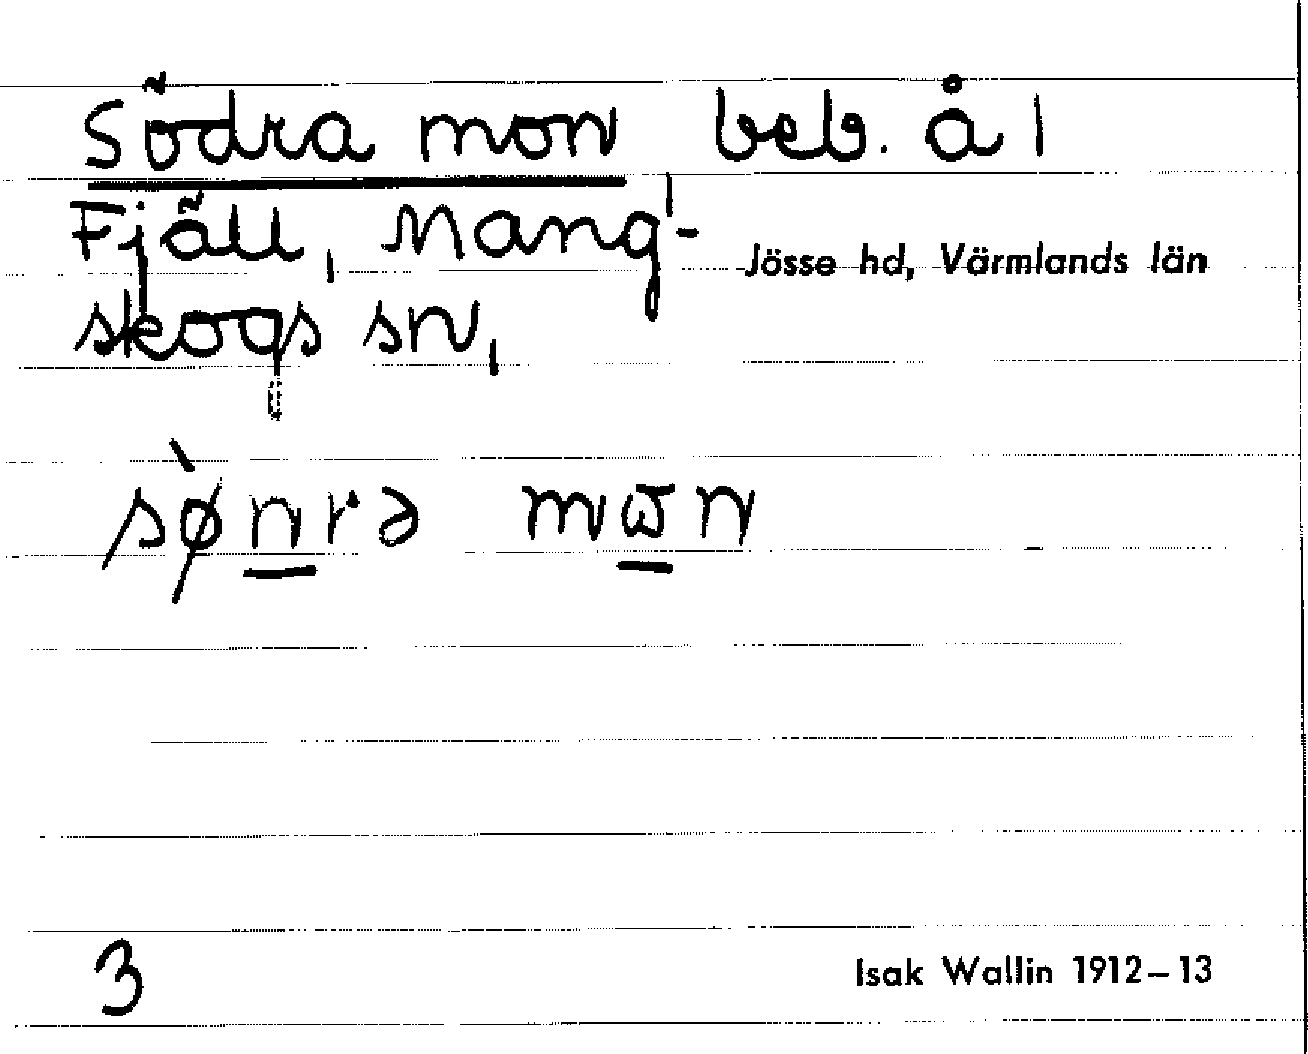 Södra mon beb. å 1
Fjäll, Mang-
Jösse hd, Värmlands län
skogs sn,
sø̀nrə mɷn
3
Isak Wallin 1912–13